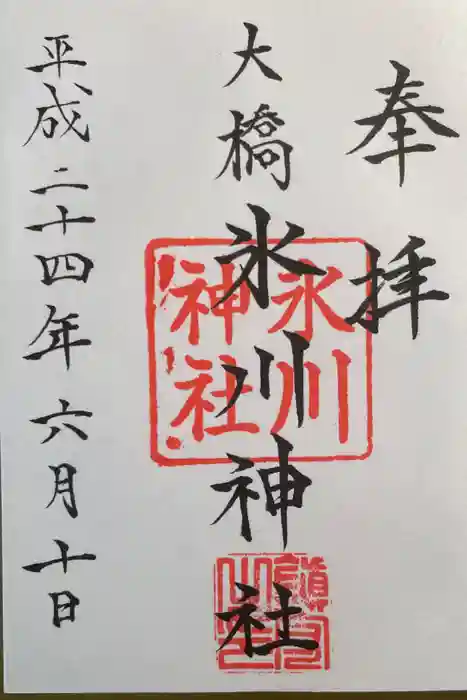 奉拝
大橋氷川神社
氷川
神社
平成二十四年六月十日